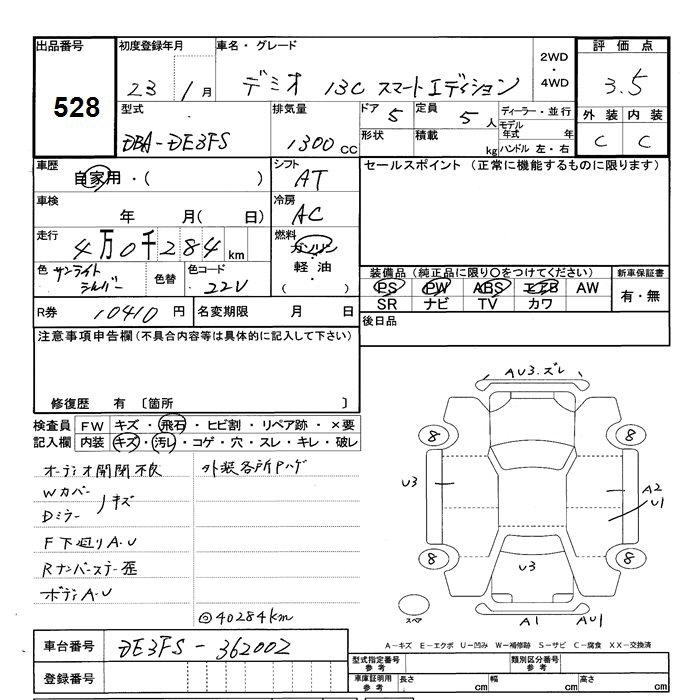 出品番号 初度登録年月 車名・グレード 2WD・4WD 評価点
528 23 1月 デミオ 13C スマートエディション 3.5
型式 排気量 ドア 5 定員 5人 ディーラー・並行 外装 内装
DBA-DE3FS 1300cc 形状 積載 kg モデル年式 年 C C
ハンドル 左・右
車歴 シフト セールスポイント (正常に機能するものに限ります)
自家用・( ) AT
車検 冷房
年 月( 日) AC
走行 燃料
4万0千284km ガソリン・軽油・( )
色 サンライトシルバー 色替 色コード 22V
装備品 (純正品に限り○をつけてください) 新車保証書
PS PW ABS エアB AW 有・無
SR ナビ TV カワ
R券 10410円 名変期限 月 日 後日品
注意事項申告欄 (不具合内容等は具体的に記入して下さい)
修復歴 有 〔箇所 〕
検査員 FW キズ・飛石・ヒビ割・リペア跡・×要
記入欄 内装 キズ・汚レ・コゲ・穴・スレ・キレ・破レ
オーディオ開閉不良 外装各所Pハゲ
Wカバー
Dミラー キズ
F下廻りA・U
Rナンバーステー歪
ボディA・U
◎40284km
AU3.ズレ
8 8
U3 A2
U1
8 8
U3
スペア A1 AU1
A-キズ E-エクボ U-凹み W-補修跡 S-サビ C-腐食 XX-交換済
車台番号 DE3FS-362002
登録番号
型式指定番号 参考 類別区分番号 参考
車庫証明用 参考 長さ cm 幅 cm 高さ cm